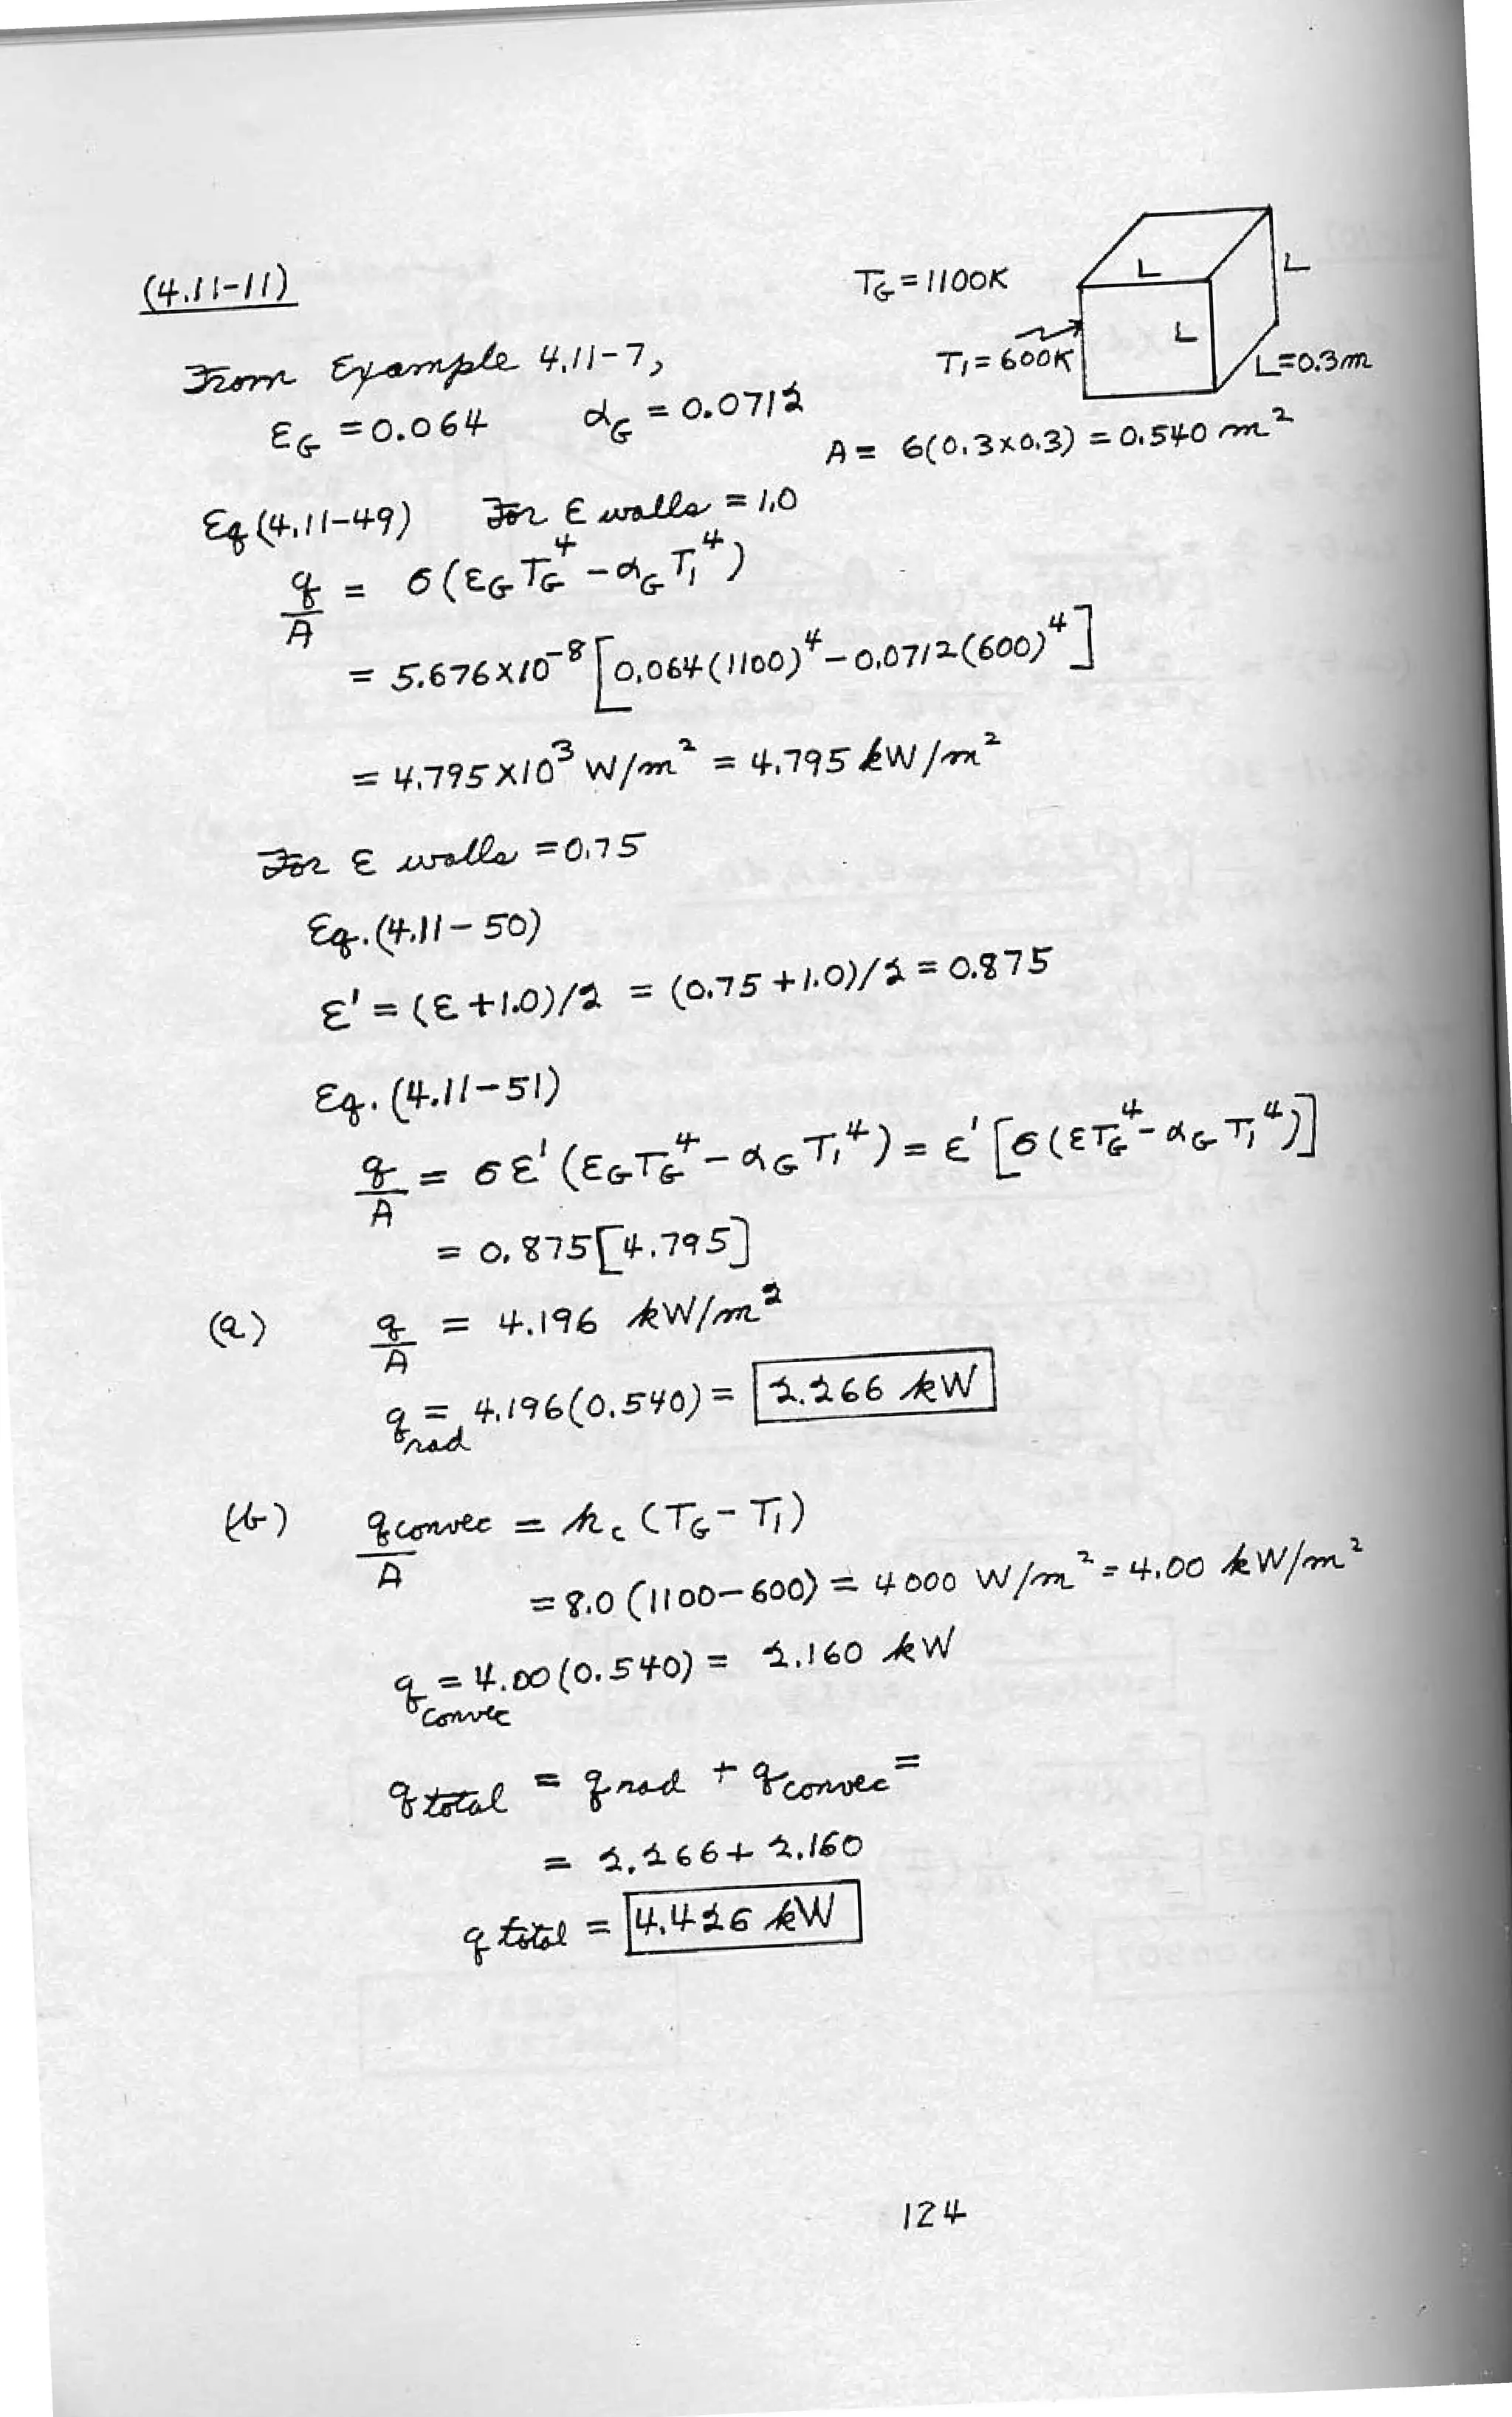 (4.11-11)
T_G = 1100K
L
L
L
T_1 = 600K
L=0.3m
From Example 4.11-7,
ε_G = 0.064 α_G = 0.0712
A = 6(0.3×0.3) = 0.540 m²
Eq (4.11-49) For ε walls = 1.0
q/A = σ(ε_G T_G⁴ - α_G T_1⁴)
= 5.676×10⁻⁸ [0.064(1100)⁴ - 0.0712(600)⁴]
= 4.795×10³ W/m² = 4.795 kW/m²
For ε walls = 0.75
Eq. (4.11-50)
ε' = (ε + 1.0)/2 = (0.75 + 1.0)/2 = 0.875
Eq. (4.11-51)
q/A = σε'(ε_G T_G⁴ - α_G T_1⁴) = ε'[σ(εT_G⁴ - α_G T_1⁴)]
= 0.875[4.795]
(a) q/A = 4.196 kW/m²
q_rad = 4.196(0.540) = 2.266 kW
(b) q convec/A = h_c (T_G - T_1)
= 8.0 (1100-600) = 4000 W/m² = 4.00 kW/m²
q_convec = 4.00(0.540) = 2.160 kW
q total = q rad + q convec =
= 2.266 + 2.160
q total = 4.426 kW
124